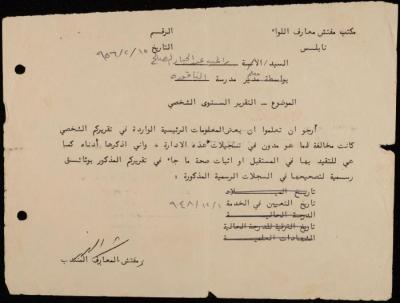 مكتب مفتش معارف اللواء
نابلس
الرقم
التاريخ ١٥/ ٢/ ٩٥٦
السيد/الآنسة
بواسطة مدير مدرسة
الموضوع - التقرير السنوى الشخصي
أرجو ان تعلموا ان بعض المعلومات الرئيسية الواردة في تقريركم الشخصي
كانت مخالفة لما هو مدون في سجلات هذه الادارة ، واني اذكرها أدناه كما
هي للتقيد بها في المستقبل او اثبات صحة ما جاء في تقريركم المذكور بوثائق
رسمية لتصحيحها في السجلات الرسمية المذكورة :
تاريخ الميلاد
تاريخ التعيين في الخدمة ١/ ١٠/ ٩٤٨
الدرجة الحالية
تاريخ الترقية للدرجة الحالية
الشهادات العلمية
مفتش المعارف المنتدب